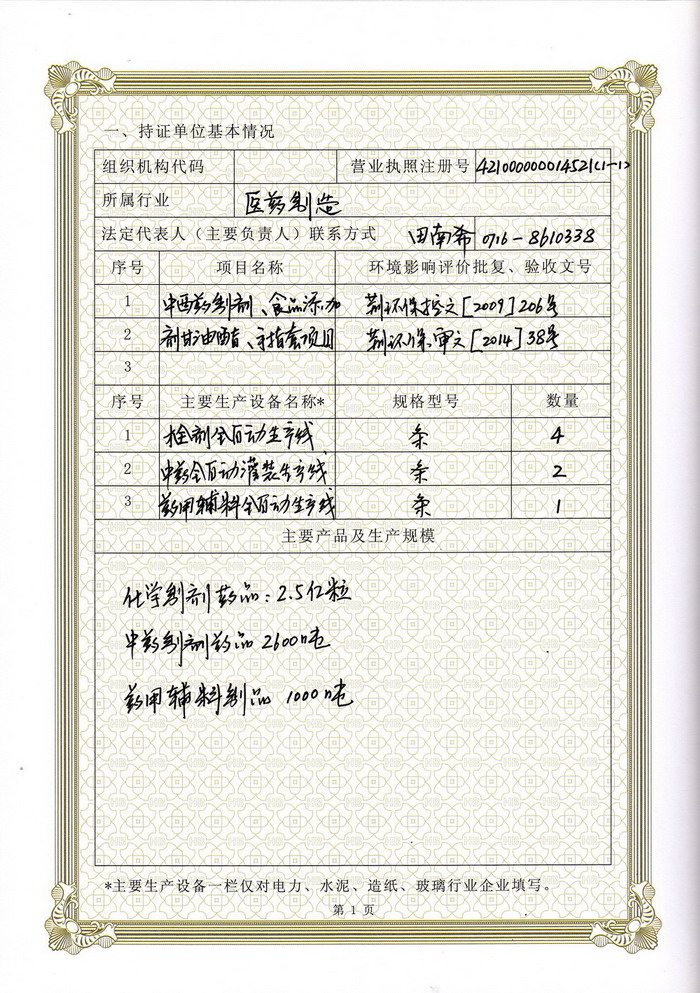 一、持证单位基本情况
组织机构代码 营业执照注册号 421000000014521(1-1)
所属行业 医药制造
法定代表人（主要负责人）联系方式 田南希 0716-8610338
序号 项目名称 环境影响评价批复、验收文号
1 中西药制剂、食品添加 荆环保控文[2009]206号
2 剂甘油酯、手指套项目 荆环保审文[2014]38号
3
序号 主要生产设备名称* 规格型号 数量
1 栓剂全自动生产线 条 4
2 中药全自动灌装生产线 条 2
3 药用辅料全自动生产线 条 1
主要产品及生产规模
化学制剂药品：2.5亿粒
中药制剂药品 2600吨
药用辅料制品 1000吨
*主要生产设备一栏仅对电力、水泥、造纸、玻璃行业企业填写。
第 1 页